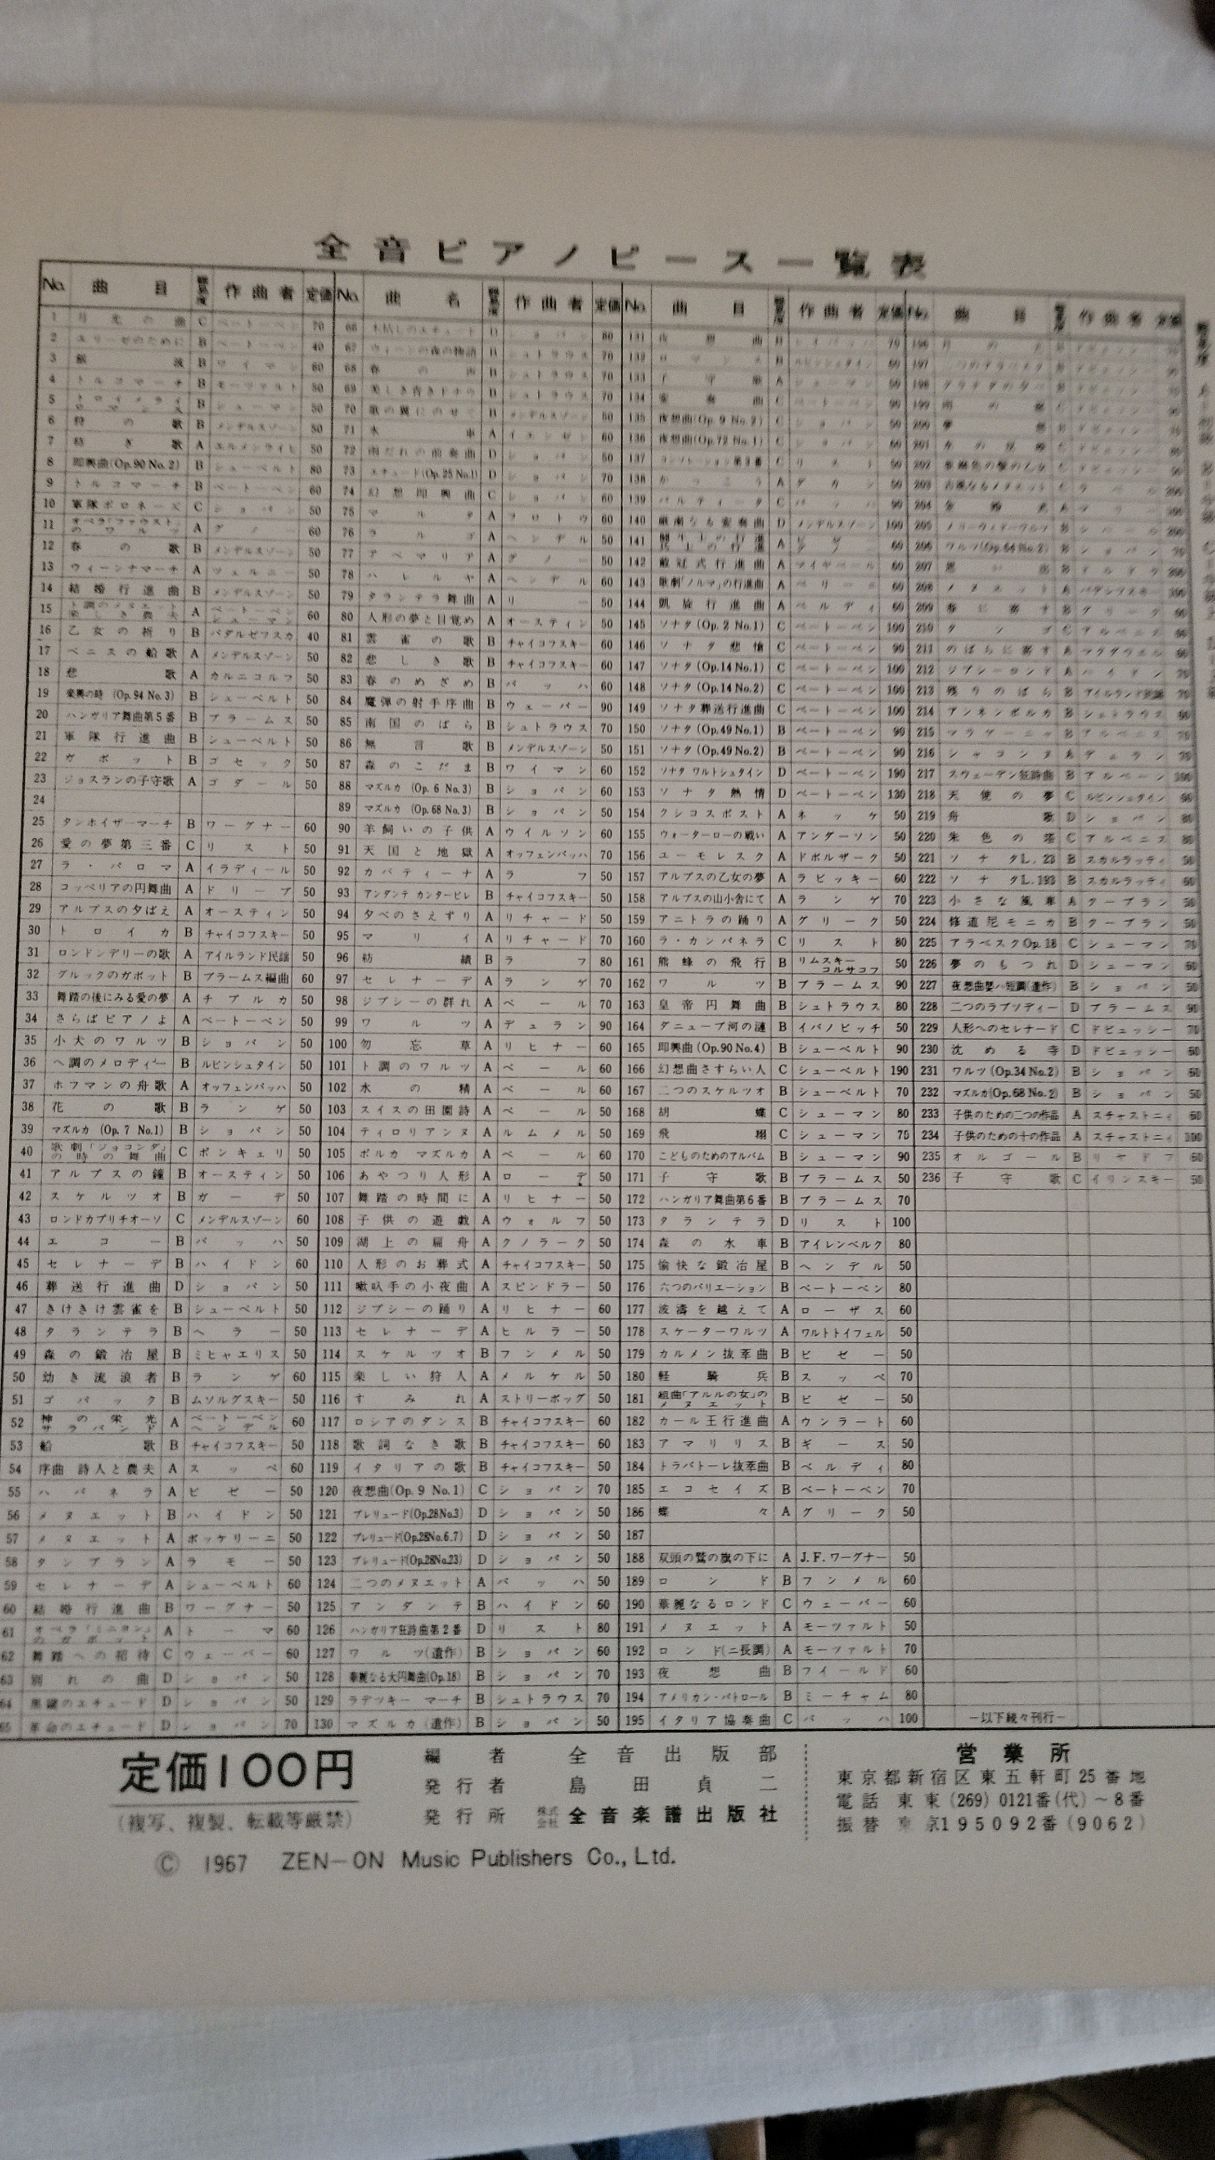 全音ピアノピース一覧表
No. 曲目 難易度 作曲者 定価
1 月光の曲 C ベートーベン 70
2 エリーゼのために B ベートーベン 40
3 銀波 B ワイマン 60
4 トルコマーチ B モーツァルト 50
5 トロイメライ ロマンス B シューマン 50
6 狩の歌 B メンデルスゾーン 50
7 紡ぎ歌 A エルメンライヒ 50
8 即興曲(Op.90 No.2) B シューベルト 80
9 トルコマーチ B ベートーベン 60
10 軍隊ポロネーズ C ショパン 50
11 オペラ「ファウスト」のワルツ A グノー 60
12 春の歌 B メンデルスゾーン 50
13 ウィーンナマーチ A ツェルニー 50
14 結婚行進曲 B メンデルスゾーン 50
15 ト調のメヌエット 楽しき農夫 A ベートーベン シューマン 60
16 乙女の祈り B バダルゼフスカ 40
17 ベニスの船歌 A メンデルスゾーン 50
18 悲歌 A カルニコルフ 50
19 楽興の時 (Op.94 No.3) B シューベルト 50
20 ハンガリア舞曲第5番 B ブラームス 50
21 軍隊行進曲 B シューベルト 50
22 ガボット B ゴセック 50
23 ジョスランの子守歌 A ゴダール 50
24
25 タンホイザーマーチ B ワーグナー 60
26 愛の夢第三番 C リスト 50
27 ラ・パロマ A イラディール 50
28 コッペリアの円舞曲 A ドリーブ 50
29 アルプスの夕ばえ A オースティン 50
30 トロイカ B チャイコフスキー 50
31 ロンドンデリーの歌 A アイルランド民謡 50
32 グルックのガボット B ブラームス編曲 60
33 舞踏の後にみる愛の夢 A チブルカ 50
34 さらばピアノよ A ベートーベン 50
35 小犬のワルツ B ショパン 50
36 ヘ調のメロディー B ルビンシュタイン 50
37 ホフマンの舟歌 A オッフェンバッハ 50
38 花の歌 B ランゲ 50
39 マズルカ (Op.7 No.1) B ショパン 50
40 歌劇「ジョコンダ」の時の舞曲 C ポンキェリ 50
41 アルプスの鐘 B オースティン 50
42 スケルツオ B ガーデ 50
43 ロンドカプリチオーソ C メンデルスゾーン 60
44 エコー B バッハ 50
45 セレナーデ B ハイドン 60
46 葬送行進曲 D ショパン 50
47 きけきけ雲雀を B シューベルト 50
48 タランテラ B ヘラー 50
49 森の鍛冶屋 B ミヒャエリス 50
50 幼き流浪者 B ランゲ 60
51 ゴパック B ムソルグスキー 50
52 神の栄光 サラバンド A ベートーベン ヘンデル 60
53 船歌 B チャイコフスキー 50
54 序曲 詩人と農夫 A スッペ 60
55 ハバネラ A ビゼー 50
56 メヌエット B ハイドン 50
57 メヌエット A ボッケリーニ 50
58 タンブラン A ラモー 50
59 セレナーデ A シューベルト 60
60 結婚行進曲 B ワーグナー 50
61 オペラ「ミニヨン」のガボット A トーマ 60
62 舞踏への招待 C ウェーバー 60
63 別れの曲 D ショパン 50
64 黒鍵のエチュード D ショパン 50
65 革命のエチュード D ショパン 70
No. 曲名 難易度 作曲者 定価
66 木枯しのエチュード D ショパン 80
67 ウィーンの森の物語 B シュトラウス 70
68 春の声 B シュトラウス 70
69 美しき青きドナウ B シュトラウス 70
70 歌の翼にのせて B メンデルスゾーン 50
71 水車 A イェンゼン 60
72 雨だれの前奏曲 D ショパン 50
73 エチュード(Op.25 No.1) D ショパン 70
74 幻想即興曲 C ショパン 60
75 マルタ A フロトウ 60
76 ラルゴ A ヘンデル 50
77 アベマリア A グノー 50
78 ハレルヤ A ヘンデル 60
79 タランテラ舞曲 A リー 50
80 人形の夢と目覚め A オースティン 50
81 雲雀の歌 B チャイコフスキー 60
82 悲しき歌 B チャイコフスキー 60
83 春のめざめ B バッハ 60
84 魔弾の射手序曲 B ウェーバー 90
85 南国のばら B シュトラウス 70
86 無言歌 B メンデルスゾーン 50
87 森のこだま B ワイマン 60
88 マズルカ (Op.6 No.3) B ショパン 60
89 マズルカ (Op.68 No.3) B ショパン 50
90 羊飼いの子供 A ウイルソン 60
91 天国と地獄 A オッフェンバッハ 70
92 カバティーナ A ラフ 50
93 アンダンテ カンタービレ B チャイコフスキー 60
94 夕べのさえずり A リチャード 50
95 マリイ A リチャード 70
96 紡績 B ラフ 80
97 セレナーデ A ランゲ 70
98 ジプシーの群れ A ベール 70
99 ワルツ A デュラン 90
100 勿忘草 A リヒナー 60
101 ト調のワルツ A ベール 60
102 水の精 A ベール 60
103 スイスの田園詩 A ベール 50
104 ティロリアンヌ A ルムメル 50
105 ポルカ マズルカ A ベール 60
106 あやつり人形 A ローデ 50
107 舞踏の時間に A リヒナー 50
108 子供の遊戯 A ウォルフ 50
109 湖上の扁舟 A クノラーク 50
110 人形のお葬式 A チャイコフスキー 50
111 喇叭手の小夜曲 A スピンドラー 50
112 ジプシーの踊り A リヒナー 60
113 セレナーデ A ヒルラー 50
114 スケルツオ B フンメル 50
115 楽しい狩人 A メルケル 50
116 すみれ A ストリーボッグ 50
117 ロシアのダンス B チャイコフスキー 60
118 歌詞なき歌 B チャイコフスキー 60
119 イタリアの歌 B チャイコフスキー 50
120 夜想曲(Op.9 No.1) C ショパン 70
121 プレリュード(Op.28No.3) D ショパン 50
122 プレリュード(Op.28No.6.7) D ショパン 50
123 プレリュード(Op.28No.23) D ショパン 50
124 二つのメヌエット A バッハ 50
125 アンダンテ B ハイドン 60
126 ハンガリア狂詩曲第2番 D リスト 80
127 ワルツ(遺作) B ショパン 60
128 華麗なる大円舞曲(Op.18) B ショパン 70
129 ラデッキー マーチ B シュトラウス 70
130 マズルカ(遺作) B ショパン 50
No. 曲目 難易度 作曲者 定価
131 夜想曲 B レイバッハ 70
132 ロマンス B ルビンシュタイン 60
133 子守歌 A シューマン 50
134 変奏曲 C ベートーベン
135 夜想曲(Op.9 No.2) C ショパン 50
136 夜想曲(Op.72 No.1) C ショパン 60
137 コンソレーション第3番 C リスト 50
138 かっこう A ダカン 50
139 パルティータ C バッハ 90
140 厳粛なる変奏曲 D メンデルスゾーン 100
141 A 60
142 戴冠式行進曲 A マイヤベール 60
143 歌劇「ノルマ」の行進曲 A ベリニー 60
144 凱旋行進曲 A ベルディ 60
145 ソナタ(Op.2 No.1) C ベートーベン 100
146 ソナタ悲愴 C ベートーベン 90
147 ソナタ(Op.14 No.1) C ベートーベン 100
148 ソナタ(Op.14 No.2) C ベートーベン 100
149 ソナタ葬送行進曲 C ベートーベン 100
150 ソナタ(Op.49 No.1) B ベートーベン 90
151 ソナタ(Op.49 No.2) B ベートーベン 90
152 ソナタ ワルトシュタイン D ベートーベン 190
153 ソナタ熱情 D ベートーベン 130
154 クシコスポスト A ネッケ 50
155 ウォーターローの戦い A アンダーソン 50
156 ユーモレスク A ドボルザーク 50
157 アルプスの乙女の夢 A ラビッキー 60
158 アルプスの山小舎にて A ランゲ 70
159 アニトラの踊り A グリーク 50
160 ラ・カンパネラ C リスト 80
161 熊蜂の飛行 B リムスキーコルサコフ 50
162 ワルツ B ブラームス 90
163 皇帝円舞曲 B シュトラウス 80
164 ダニューブ河の漣 B イバノビッチ 50
165 即興曲(Op.90 No.4) B シューベルト 90
166 幻想曲さすらい人 C シューベルト 190
167 二つのスケルツオ B シューベルト 70
168 胡蝶 C シューマン 80
169 飛翔 C シューマン 70
170 こどものためのアルバム B シューマン 90
171 子守歌 B ブラームス 50
172 ハンガリア舞曲第6番 B ブラームス 70
173 タランテラ D リスト 100
174 森の水車 B アイレンベルク 80
175 愉快な鍛冶屋 B ヘンデル 50
176 六つのバリエーション B ベートーベン 80
177 波濤を越えて A ローザス 60
178 スケーターワルツ A ワルトトイフェル 50
179 カルメン抜萃曲 B ビゼー 50
180 軽騎兵 B スッペ 70
181 組曲「アルルの女」のメヌエット B ビゼー 50
182 カール王行進曲 A ウンラート 60
183 アマリリス B ギース 50
184 トラバトーレ抜萃曲 B ベルディ 80
185 エコセイズ B ベートーベン 70
186 蝶々 A グリーク 50
187
188 双頭の鷲の旗の下に A J.F.ワーグナー 50
189 ロンド B フンメル 60
190 華麗なるロンド C ウェーバー 60
191 メヌエット A モーツァルト 50
192 ロンド(ニ長調) A モーツァルト 70
193 夜想曲 B フィールド 60
194 アメリカン・パトロール B ミーチャム 80
195 イタリア協奏曲 C バッハ 100
No. 曲目 難易度 作曲者 定価
196 月の光 ドビュッシー
197 二つのアラベスク ドビュッシー
198 グラナダの夕 ドビュッシー
199 雨の庭 ドビュッシー
200 夢 ドビュッシー
201 水の反映 ドビュッシー
202 亜麻色の髪の乙女 ドビュッシー
203 古風なるメヌエット ラベル
204 金婚式 マリー
205 メリーウィドーワルツ
206 ワルツ(Op.64 No.2) B ショパン
207 思い出 B ドルドラ
208 メヌエット A パデレフスキー
209 春に寄す B グリーク
210 タンゴ C アルベニス
211 のばらに寄す A マクダウエル
212 ジプシーロンド A ハイドン
213 残りのばら B アイルランド民謡
214 アンネンポルカ B シュトラウス
215 マラゲーニャ B アルベニス
216 シャコンヌ A デュラン
217 スウェーデン狂詩曲 B アルベーン 100
218 天使の夢 C ルビンシュタイン
219 舟歌 D ショパン
220 朱色の塔 C アルベニス
221 ソナタL.23 B スカルラッティ
222 ソナタL.193 B スカルラッティ
223 小さな風車 A クープラン 50
224 修道尼モニカ B クープラン 50
225 アラベスクOp.18 C シューマン 70
226 夢のもつれ D シューマン 60
227 夜想曲嬰ハ短調(遺作) B ショパン 50
228 二つのラプソディー D ブラームス 90
229 人形へのセレナード C ドビュッシー 70
230 沈める寺 D ドビュッシー 60
231 ワルツ(Op.34 No.2) B ショパン 60
232 マズルカ(Op.68 No.2) B ショパン 50
233 子供のための二つの作品 A スチャストニィ 60
234 子供のための十の作品 A スチャストニィ 100
235 オルゴール B リヤドフ 60
236 子守歌 C イリンスキー 50
―以下続々刊行―
定価100円
(複写、複製、転載等厳禁)
編者 全音出版部
発行者 島田貞二
発行所 株式会社 全音楽譜出版社
営業所
東京都新宿区東五軒町25番地
電話 東京(269)0121番(代)~8番
振替 東京195092番(9062)
© 1967 ZEN-ON Music Publishers Co., Ltd.